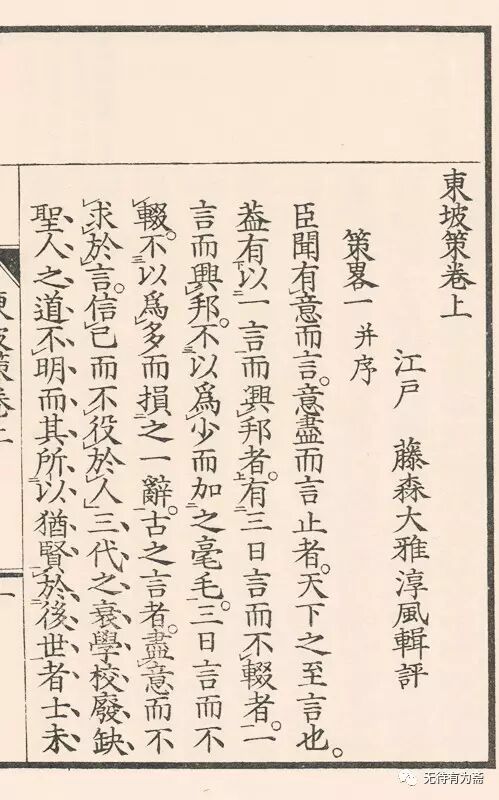 東坡策卷上
江戸　藤森大雅淳風輯評
策畧一 并序
臣聞有意而言。意盡而言止者。天下之至言也。
葢有以一言而興邦者。有三日言而不輟者。一
言而興邦。不以爲少而加之毫毛。三日言而不
輟。不以爲多而損之一辭。古之言者。盡意而不
求於言。信己而不役於人、三代之衰、學校廢缺、
聖人之道不明而其所以猶賢於後世者士未
坡策卷上
一
无待有为斋